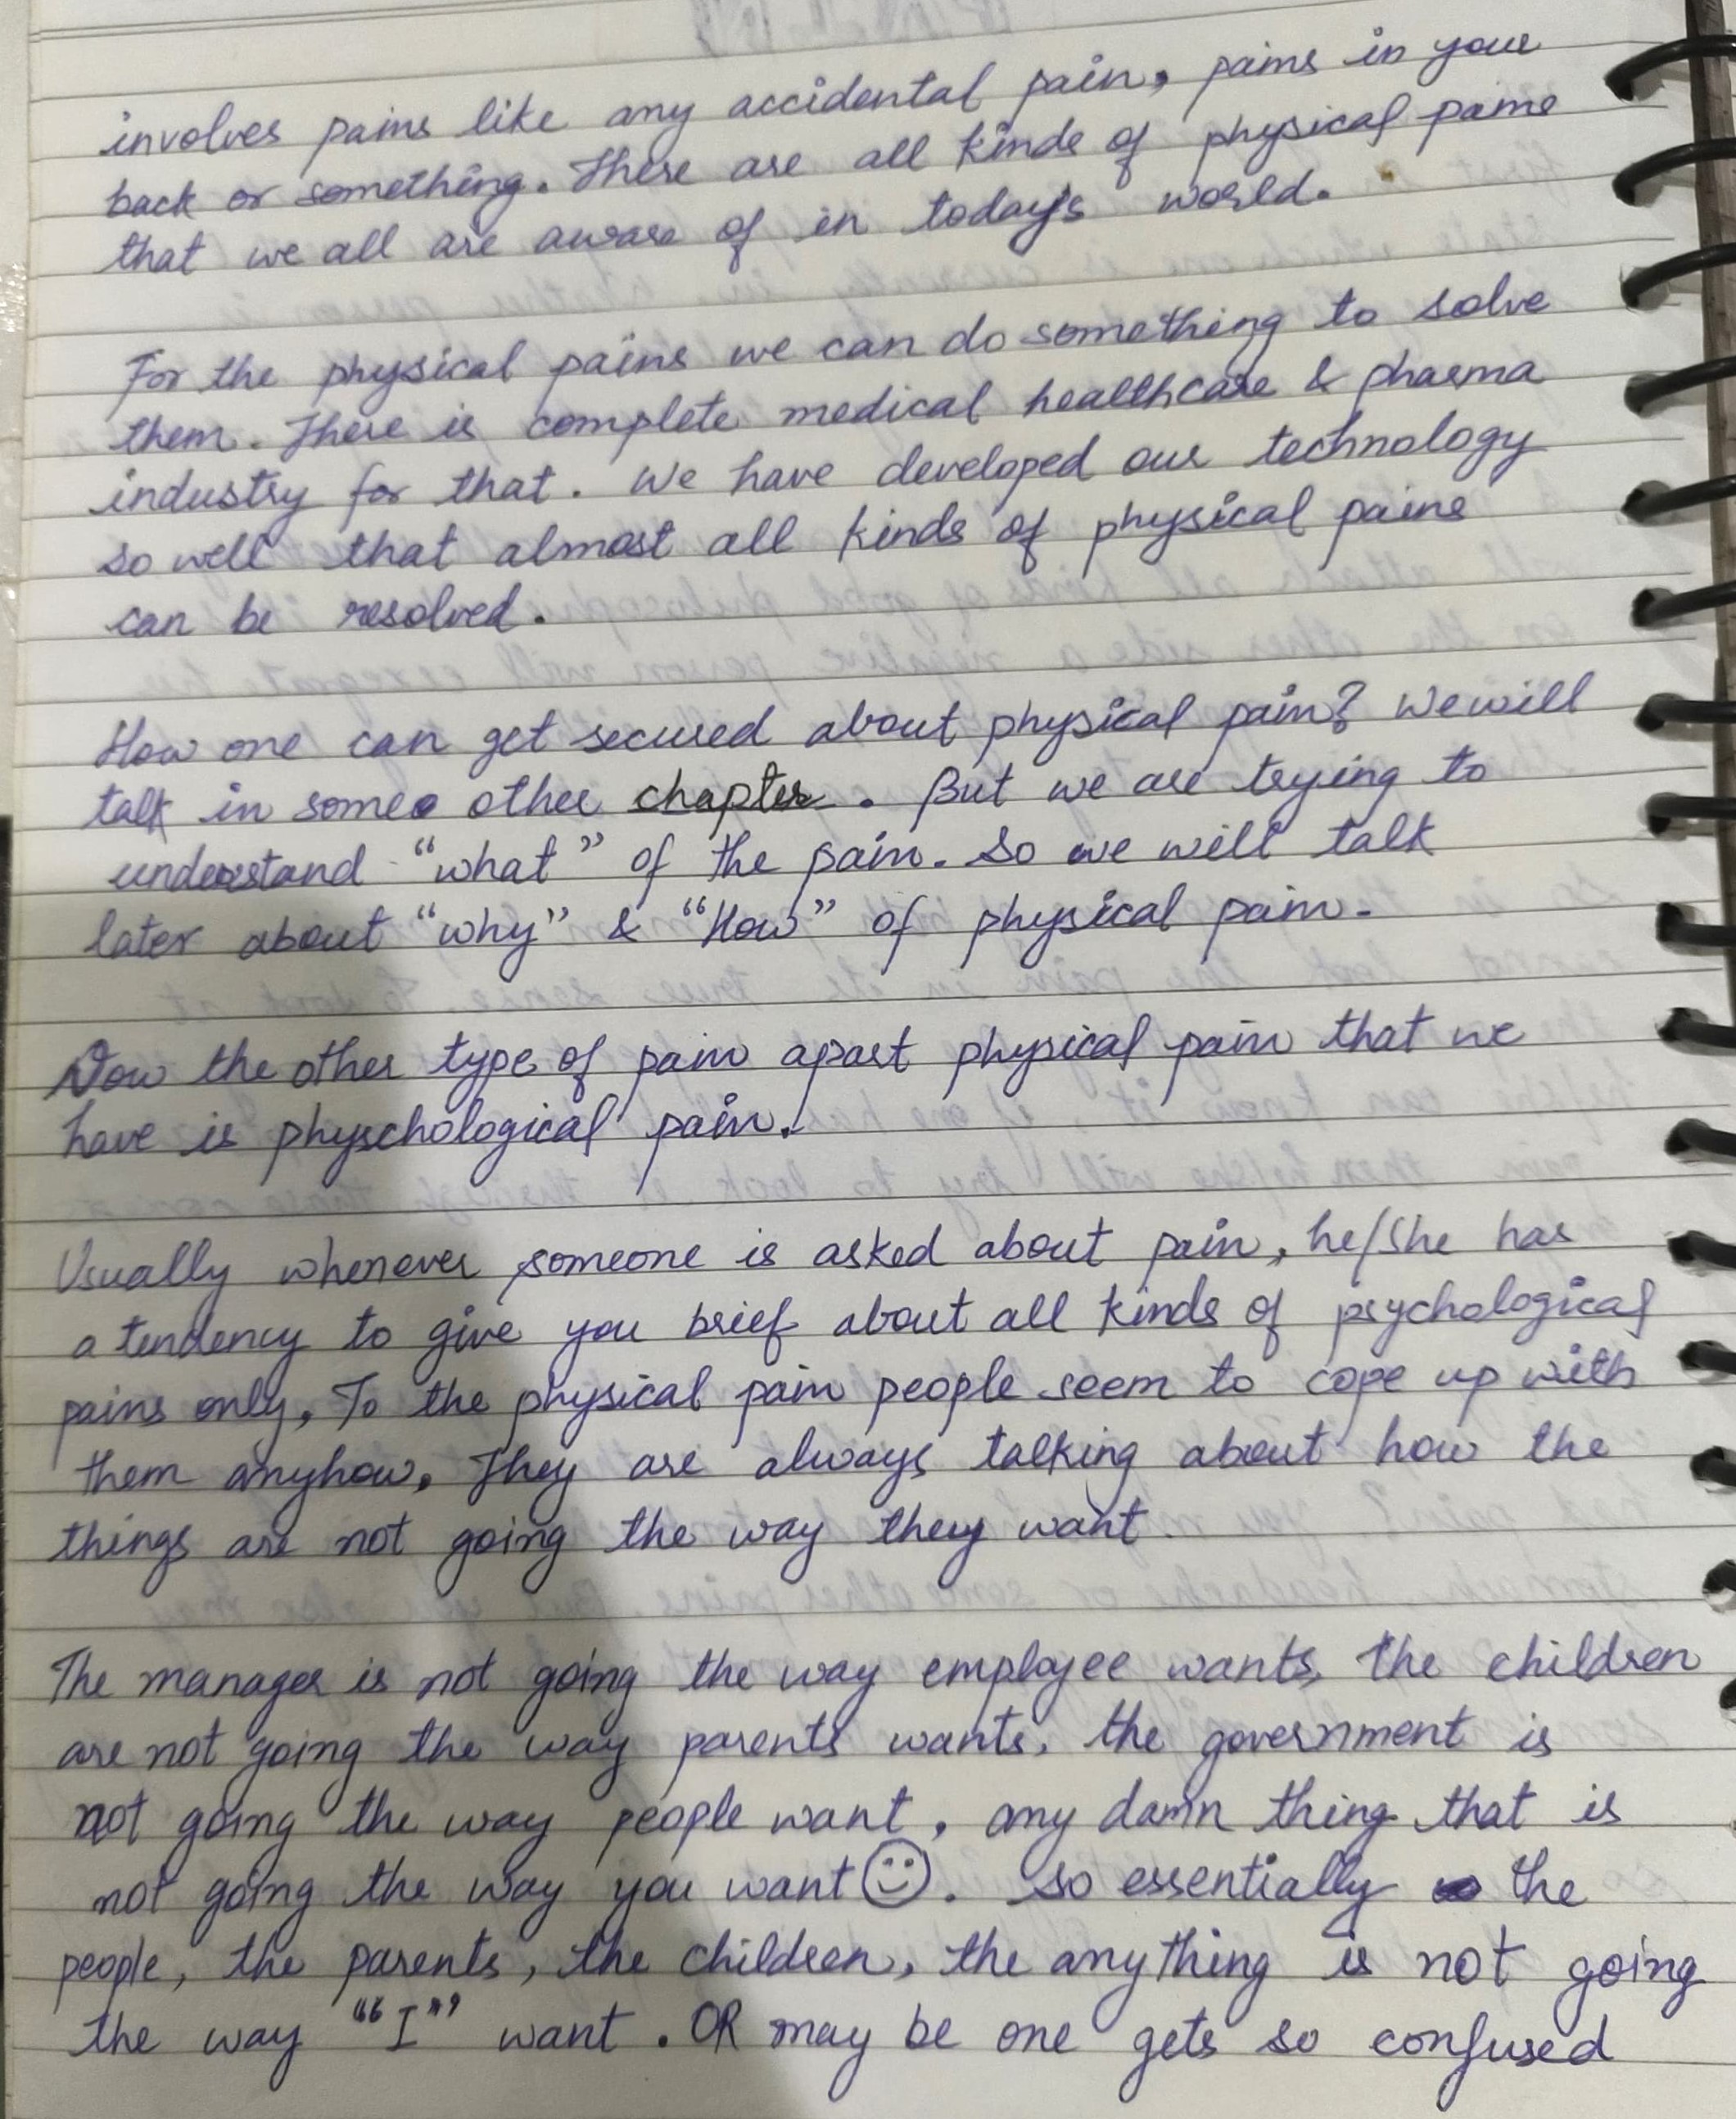 involves pains like any accidental pain, pains in your
back or something. These are all kinds of physical pains
that we all are aware of in today's world.
For the physical pains we can do something to solve
them. There is complete medical healthcare & pharma
industry for that. We have developed our technology
so well that almost all kinds of physical pains
can be resolved.
How one can get secured about physical pain? We will
talk in some other chapter. But we are trying to
understand "what" of the pain. So we will talk
later about "why" & "How" of physical pain.
Now the other type of pain apart physical pain that we
have is physchological pain.
Usually whenever someone is asked about pain, he/she has
a tendency to give you brief about all kinds of psychological
pains only. To the physical pain people seem to cope up with
them anyhow. They are always talking about how the
things are not going the way they want.
The manager is not going the way employee wants, the children
are not going the way parents wants, the government is
not going the way people want, any damn thing that is
not going the way you want ☺. So essentially the
people, the parents, the children, the anything is not going
the way ""I"" want. OR may be one gets so confused